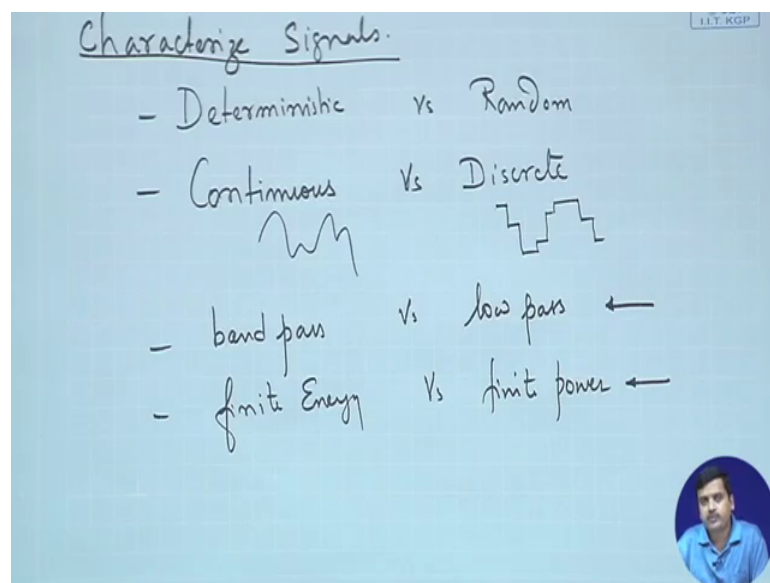 I.I.T. KGP
Characterize Signals.
- Deterministic Vs Random
- Continuous Vs Discrete
- band pass Vs low pass ←
- finite Energy Vs finite power ←